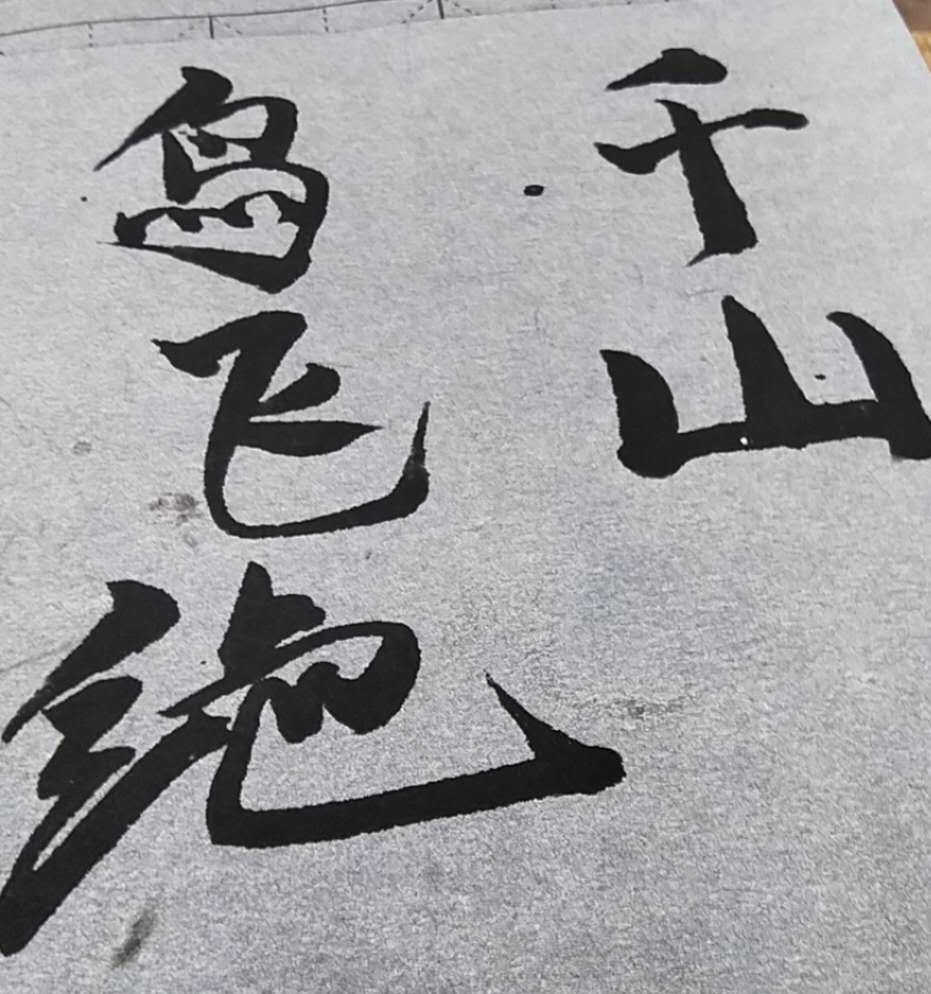 千山
鸟飞绝